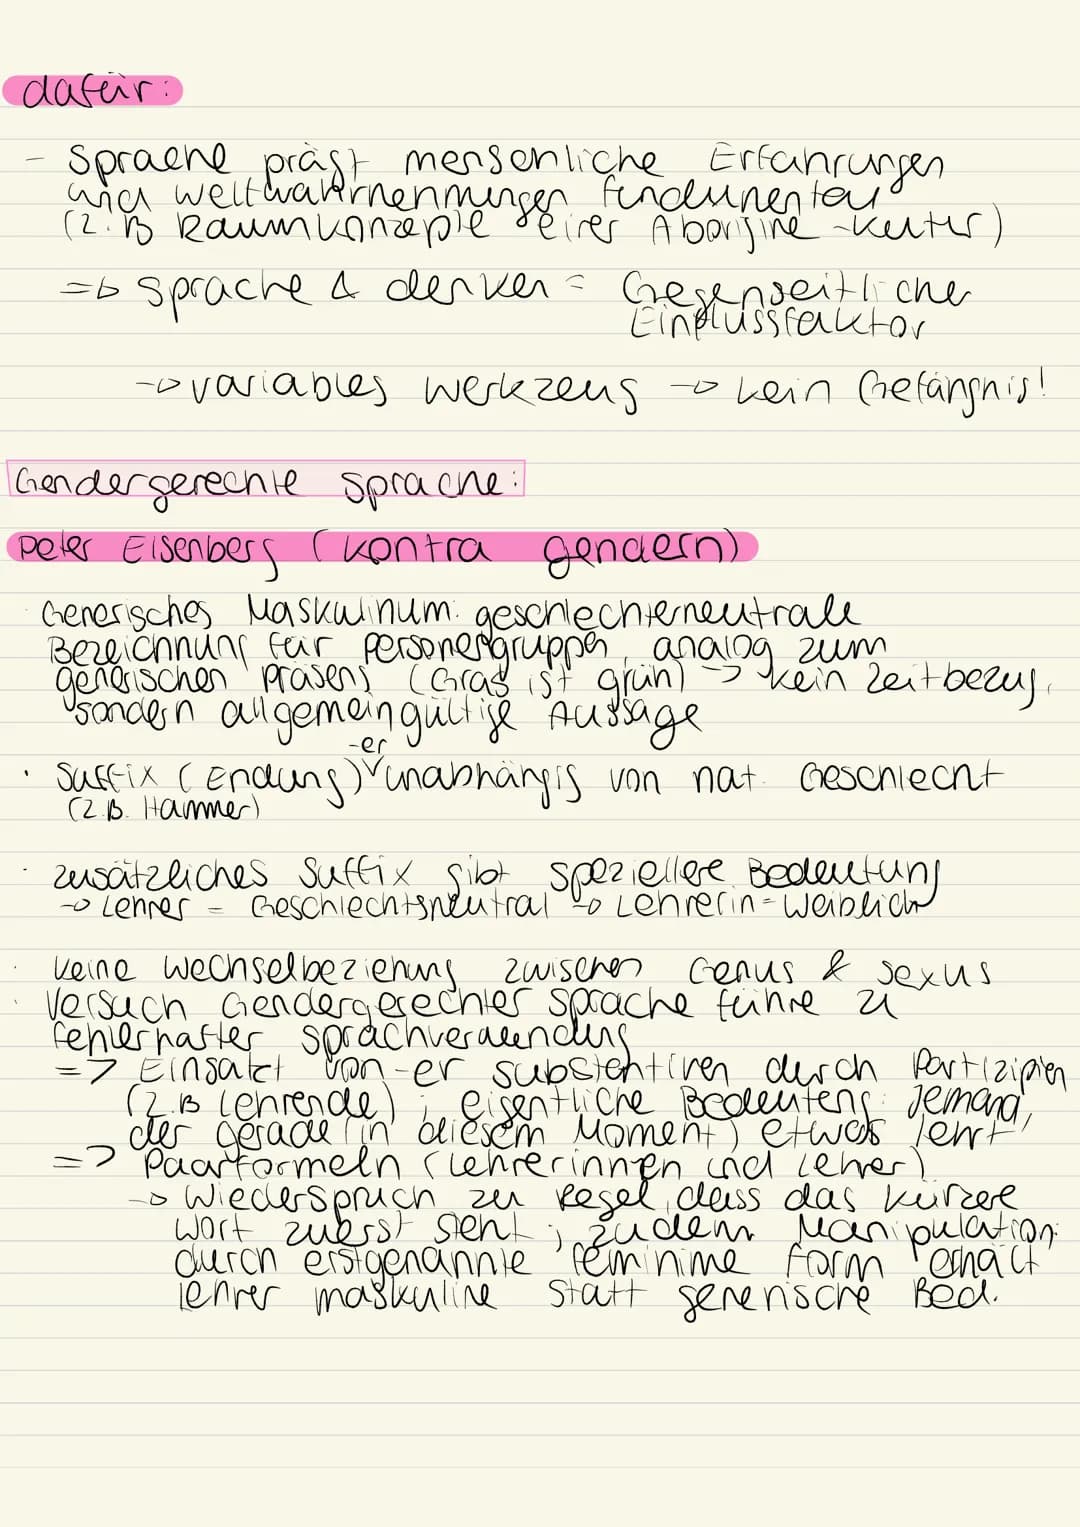 dafür:
- Sprache prägt menschliche Erfahrungen
und weltwahrnehmungen fundamental
(z.B Raumkonzepte einer Aborigine-Kultur)
=> Sprache & denken = Gegenseitlicher
Einflussfaktor
-> variables werkzeug -> kein Gefängnis!
Gendergerechte sprache:
Peter Eisenberg (kontra gendern)
· Generisches Maskulinum: geschlechterneutrale
Bezeichnung für Personengruppen, analog zum
generischen Präsens (Gras ist grün) -> kein Zeitbezug,
sondern allgemeingültige Aussage
-er
· Suffix (Endung) ∨ unabhängig von nat. Geschlecht
(z.B. Hammer)
· zusätzliches Suffix gibt speziellere Bedeutung
-> Lehrer = Geschlechtsneutral -> Lehrerin = Weiblich
· keine Wechselbeziehung zwischen Genus & Sexus
· Versuch Gendergerechter Sprache führe zu
fehlerhafter Sprachverwendung
=> Einsatz von -er substentiven durch Partizipien
(z.B Lehrende); eigentliche Bedeutung: Jemand,
der gerade (in diesem Moment) etwas lehrt
=> Paarformeln (Lehrerinnen und Lehrer)
-> Wiederspruch zu Regel, dass das kürzere
Wort zuerst steht; zudem Manipulation:
durch erstgenannte feminime Form erhält
Lehrer maskuline statt generische Bed.